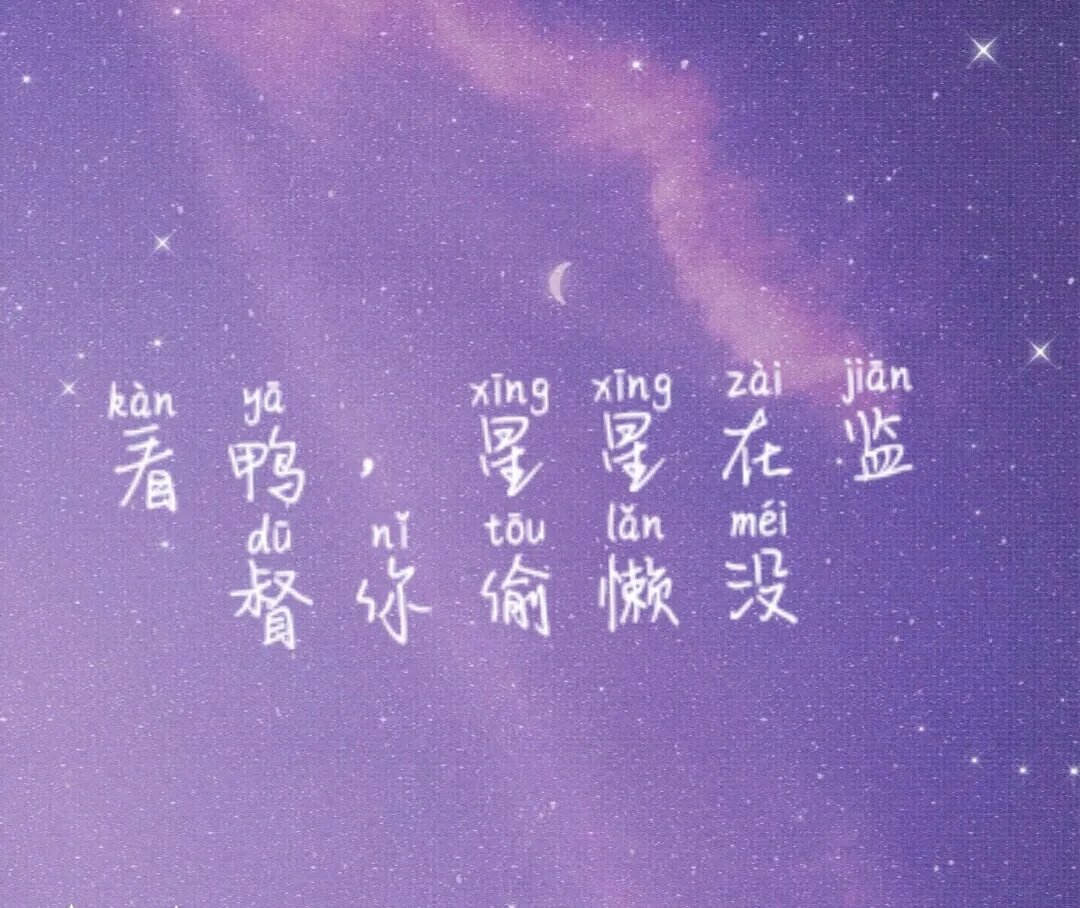 kàn yā xīng xīng zài jiān
看鸭，星星在监
dū nǐ tōu lǎn méi
督你偷懒没